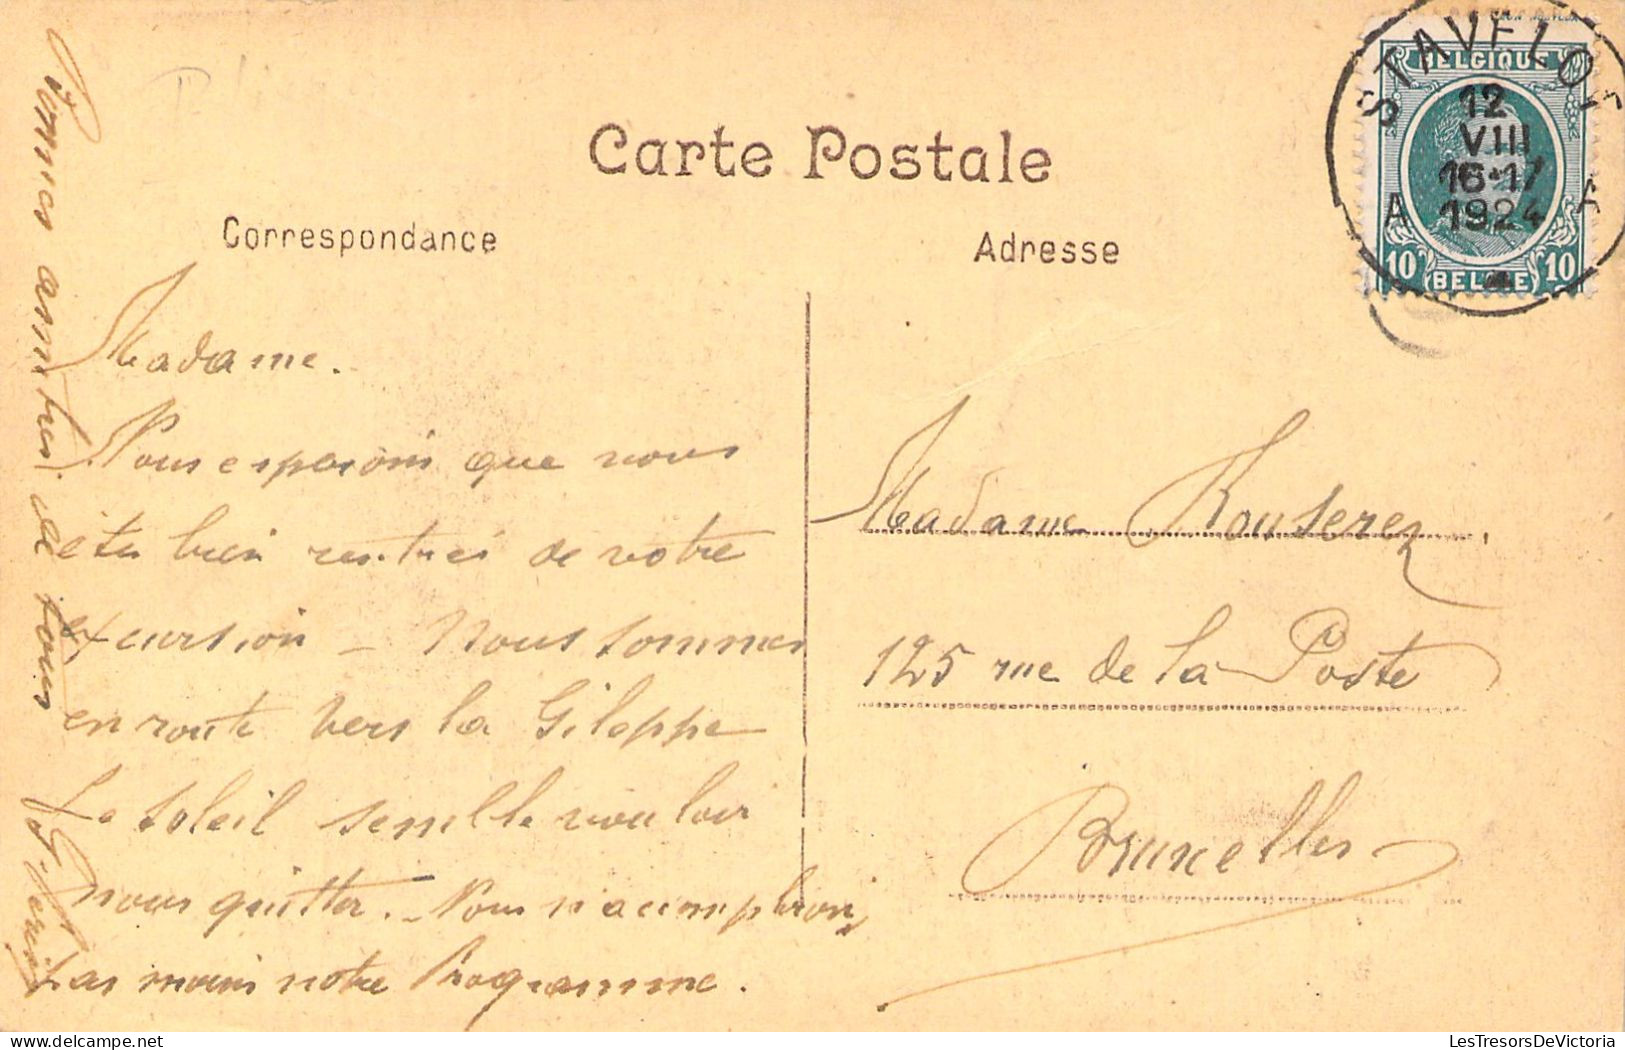 Carte Postale
Correspondance
Adresse
STAVELOT
12
VIII
16-17
1924
A A
BELGIQUE
10 BELGIË 10
Madame.
Nous esperons que vous
êtes bien rentrés de votre
excursion – Nous sommes
en route vers la Gileppe
Le soleil semble vouloir
nous quitter. – Nous n'accomplirons
pas moins notre Programme.
amitiés de tous
Madame Rouserez,
125 rue de la Poste
Bruxelles
LesTresorsDeVictoria